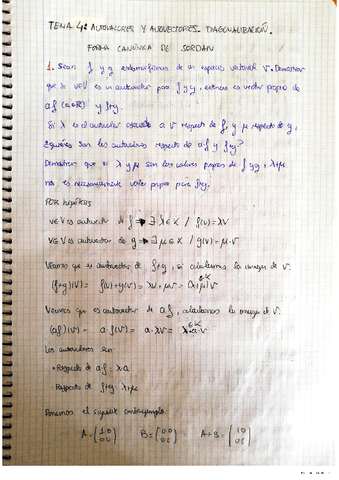 TEMA 4: AUTOVALORES Y AUTOVECTORES. DIAGONALIZACIÓN.
FORMA CANÓNICA DE JORDAN
1. Sean f y g endomorfismos de un espacio vectorial V. Demostrar
que si v∈V es un autovector para f y g, entonces es vector propio de
af (a∈R) y f+g.
Si λ es el autovalor asociado a v respecto de f, y μ respecto de g,
¿quiénes son los autovalores respecto de af y f+g?
Demostrar que si λ y μ son los valores propios de f y g, λ+μ
no es necesariamente valor propio para f+g.
POR HIPÓTESIS
v∈V es autovector de f → ∃ λ∈K / f(v)=λv
v∈V es autovector de g → ∃ μ∈K / g(v)=μ·v
Veamos que es autovector de f+g, si calculamos la imagen de v:
(f+g)(v)= f(v)+g(v)= λv+μv= (λ+μ)v ∈K
Veamos que es autovector de af, calculamos la imagen de v:
(af)(v)= a·f(v)= a·λv= λ·a·v ∈K
Los autovalores son:
• Respecto de af: λ·a
• Respecto de f+g: λ+μ
Ponemos el siguiente contraejemplo
A=(1 0 B=(0 0 A+B=(1 0
0 0) 0 0) 0 0)